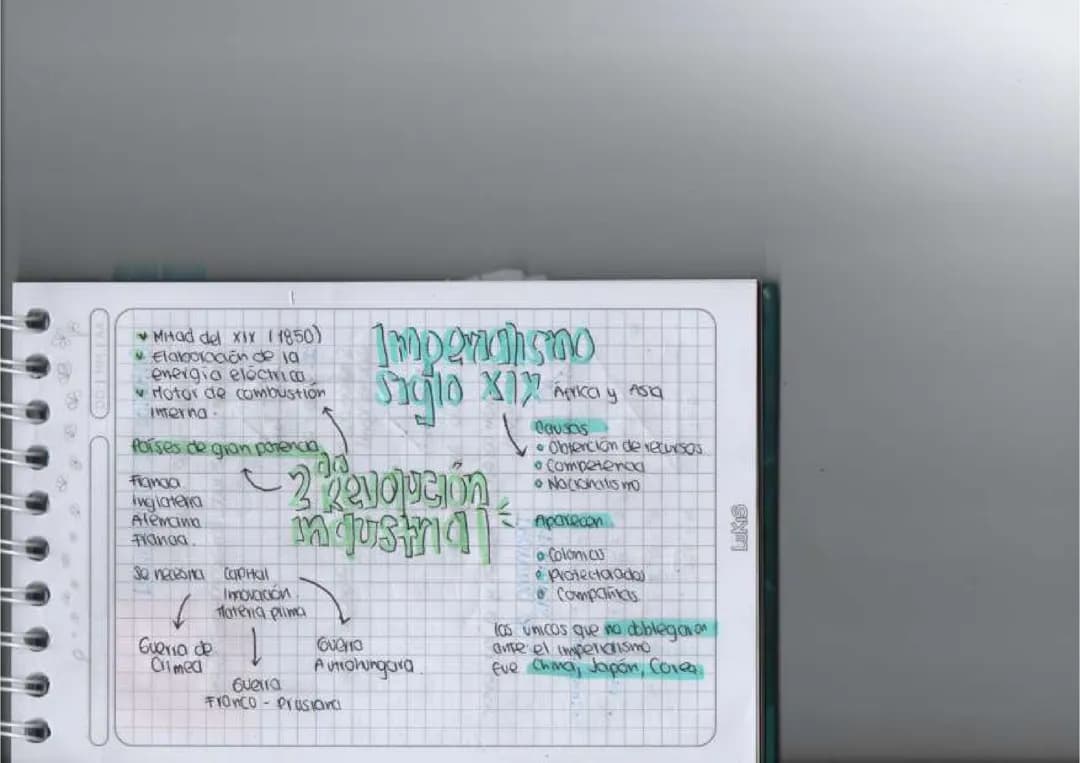 Mitad del XIX (1850)
Elaboración de la
energía eléctrica.
Motor de combustión
interna.
Países de gran potencia
Francia
Inglaterra
Alemania
Francia.
Se necesita capital
Innovación
Materia prima
Guerra de
Crimea
Guerra
Franco - Prusiana
Guerra
Austrohungara
2da Revolución
industrial
Imperialismo
siglo XIX África y Asia
Causas
Obtención de recursos
Competencia
Nacionalismo
Aparecen
Colonias
Protectorados
Compañías
los únicos que no doblegaron
ante el imperialismo
fue China, Japón, Corea.